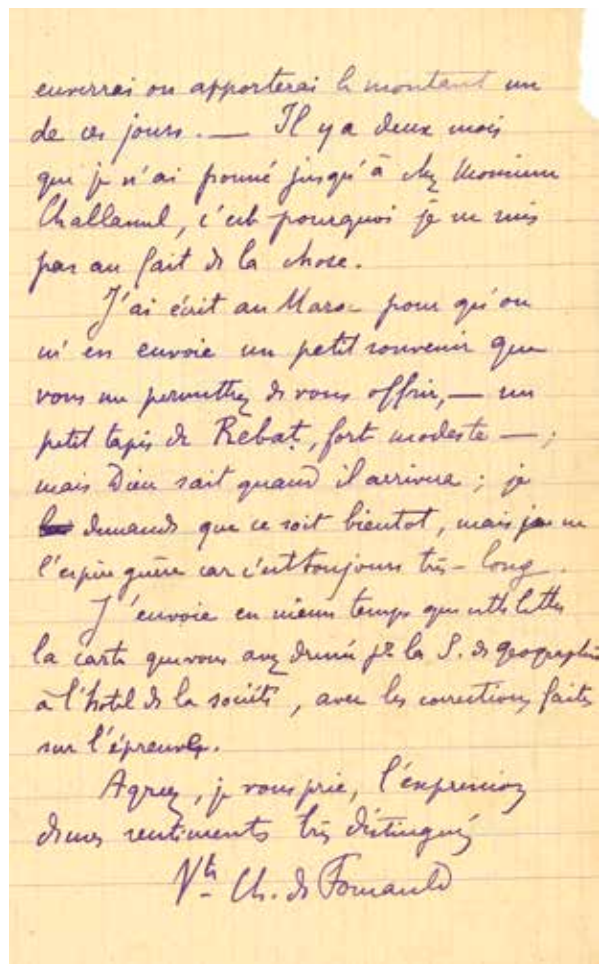 enverrai ou apporterai le montant un
de ces jours. — Il y a deux mois
que je n'ai poussé jusqu'à chez Monsieur
Challamel, c'est pourquoi je ne suis
pas au fait de la chose.
J'ai écrit au Maroc pour qu'on
m'en envoie un petit souvenir que
vous me permettrez de vous offrir, — un
petit tapis de Rebat, fort modeste — ;
mais Dieu sait quand il arrivera ; je
demande que ce soit bientot, mais je ne
l'espère guère car c'est toujours très-long.
J'envoie en même temps que cette lettre
la carte que vous avez dessinée pr la S. de géographie
à l'hotel de la société, avec les corrections faites
sur l'épreuve.
Agréez, je vous prie, l'expression
de mes sentiments très distingués
Vte Ch. de Foucauld